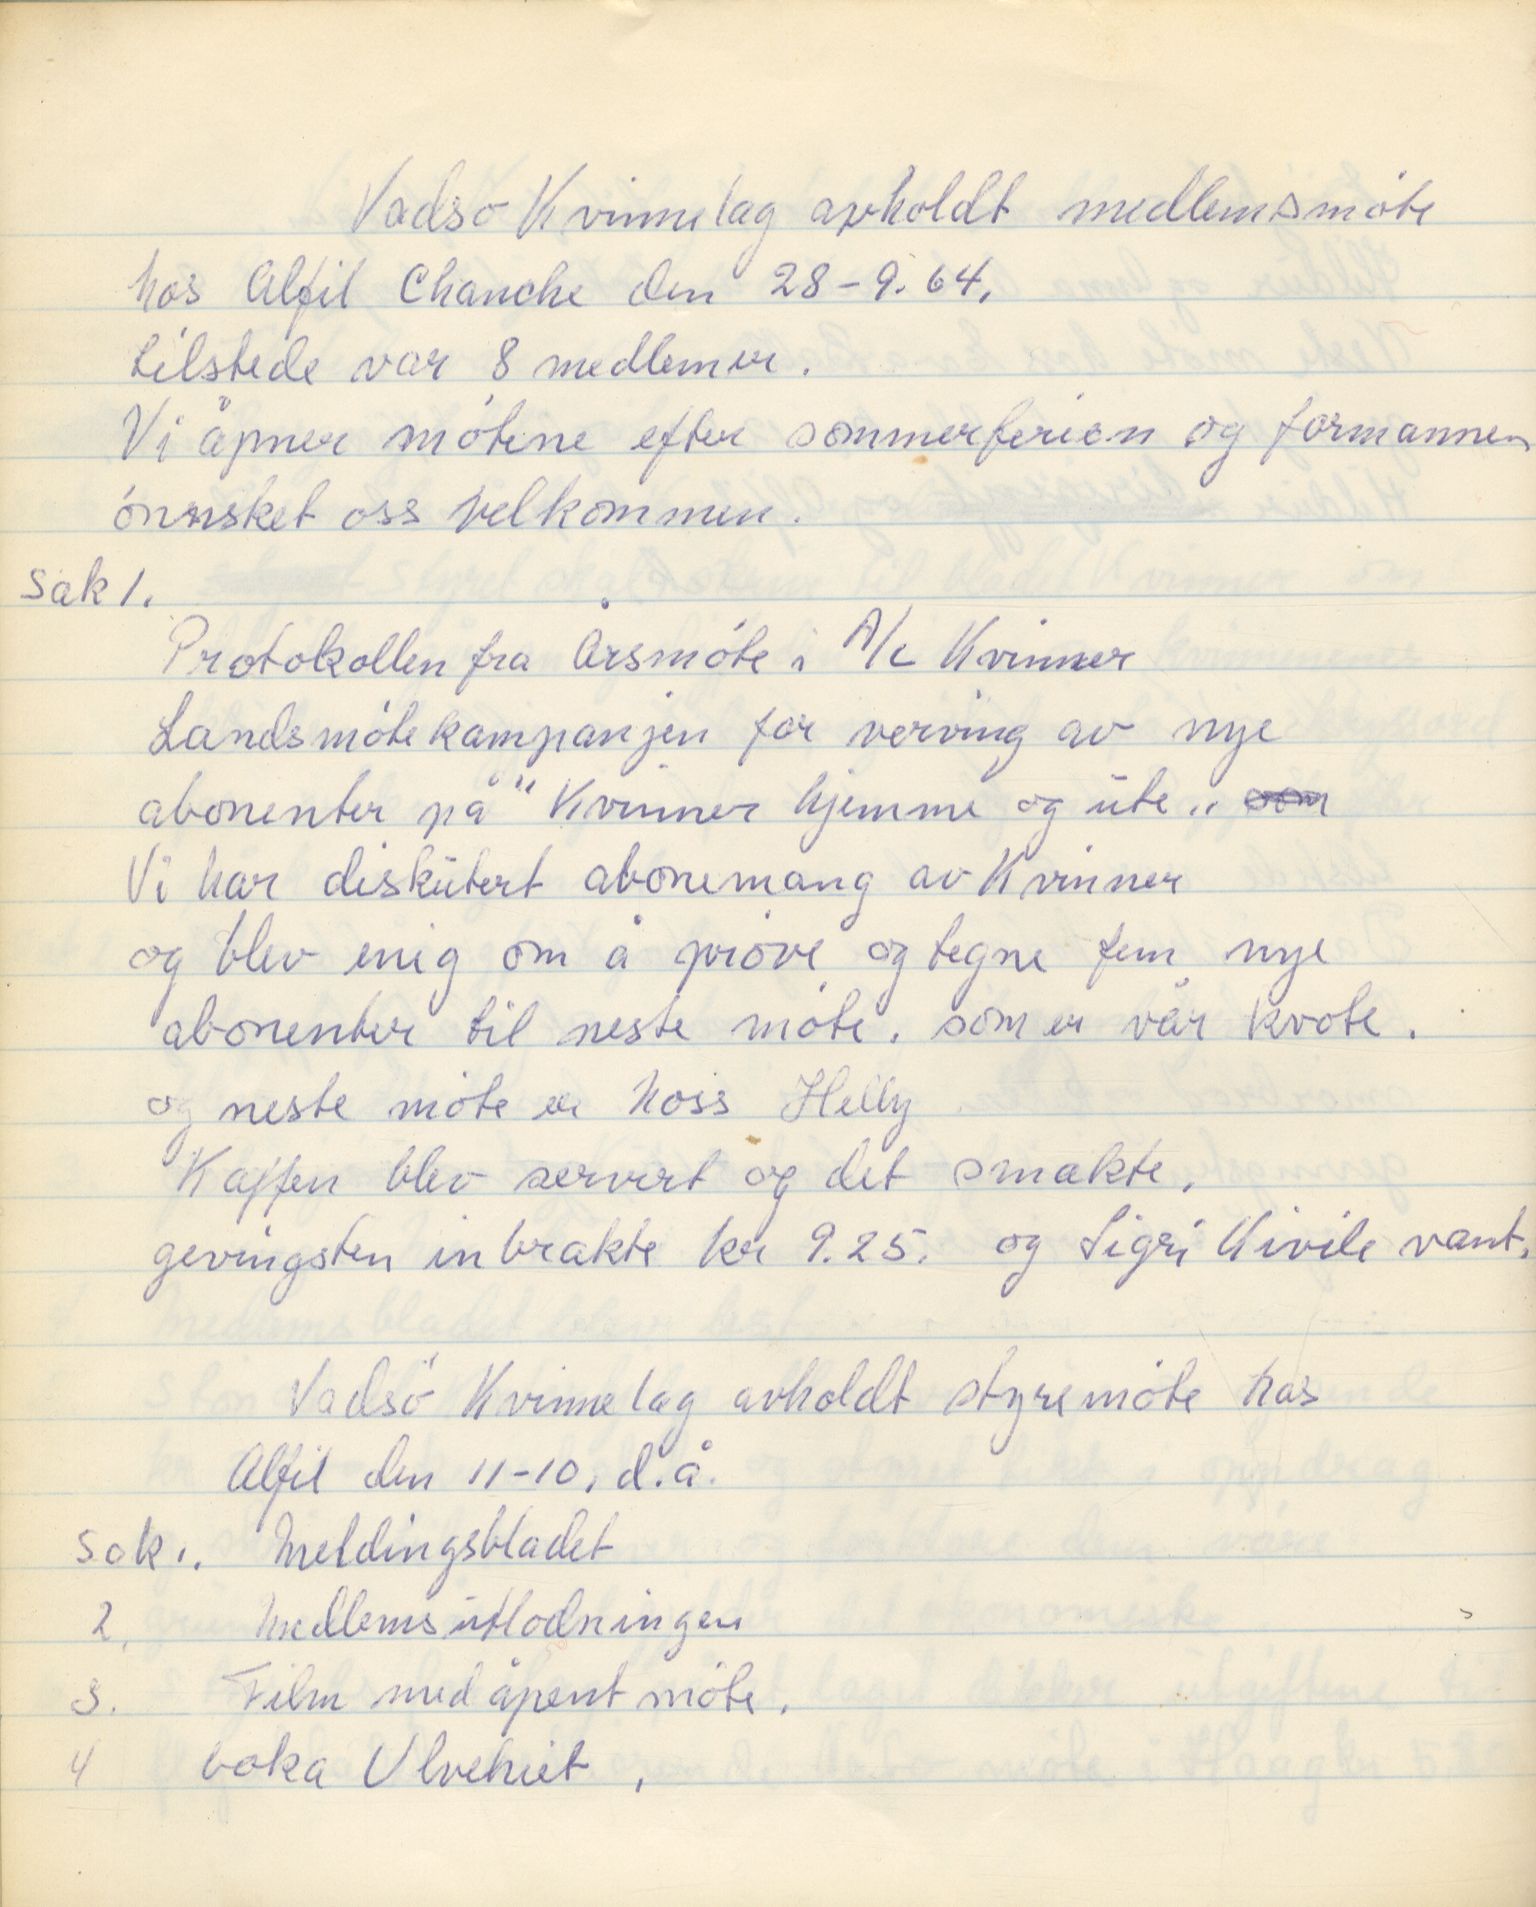 Vadsö Kvinnelag avholdt medlemsmöte
hos Alfil Chanche den 28-9.64.
tilstede var 8 medlemer.
Vi åpner mötene efter sommerferien og formannen
önnsket oss velkommen.
Sak 1.
Protokollen fra Årsmöte i A/L Kvinner
Landsmötekampanjen for verving av nye
abonenter på "Kvinner hjemme og ute"
Vi har diskutert abonemang av Kvinner
og blev enig om å pröve og tegne fem nye
abonenter til neste möte. som er vår kvote.
og neste möte er hoss Helly
Kaffen blev servert og det smakte.
gevingsten inbrakte kr 9.25. og Sigri Kivile vant.
Vadsö Kvinnelag avholdt styremöte hos
Alfil den 11-10. d.å.
Sak 1. Meldingsbladet
2. Medlemsutlodningen
3. Film med åpent möte.
4 boka Ulvehiet.